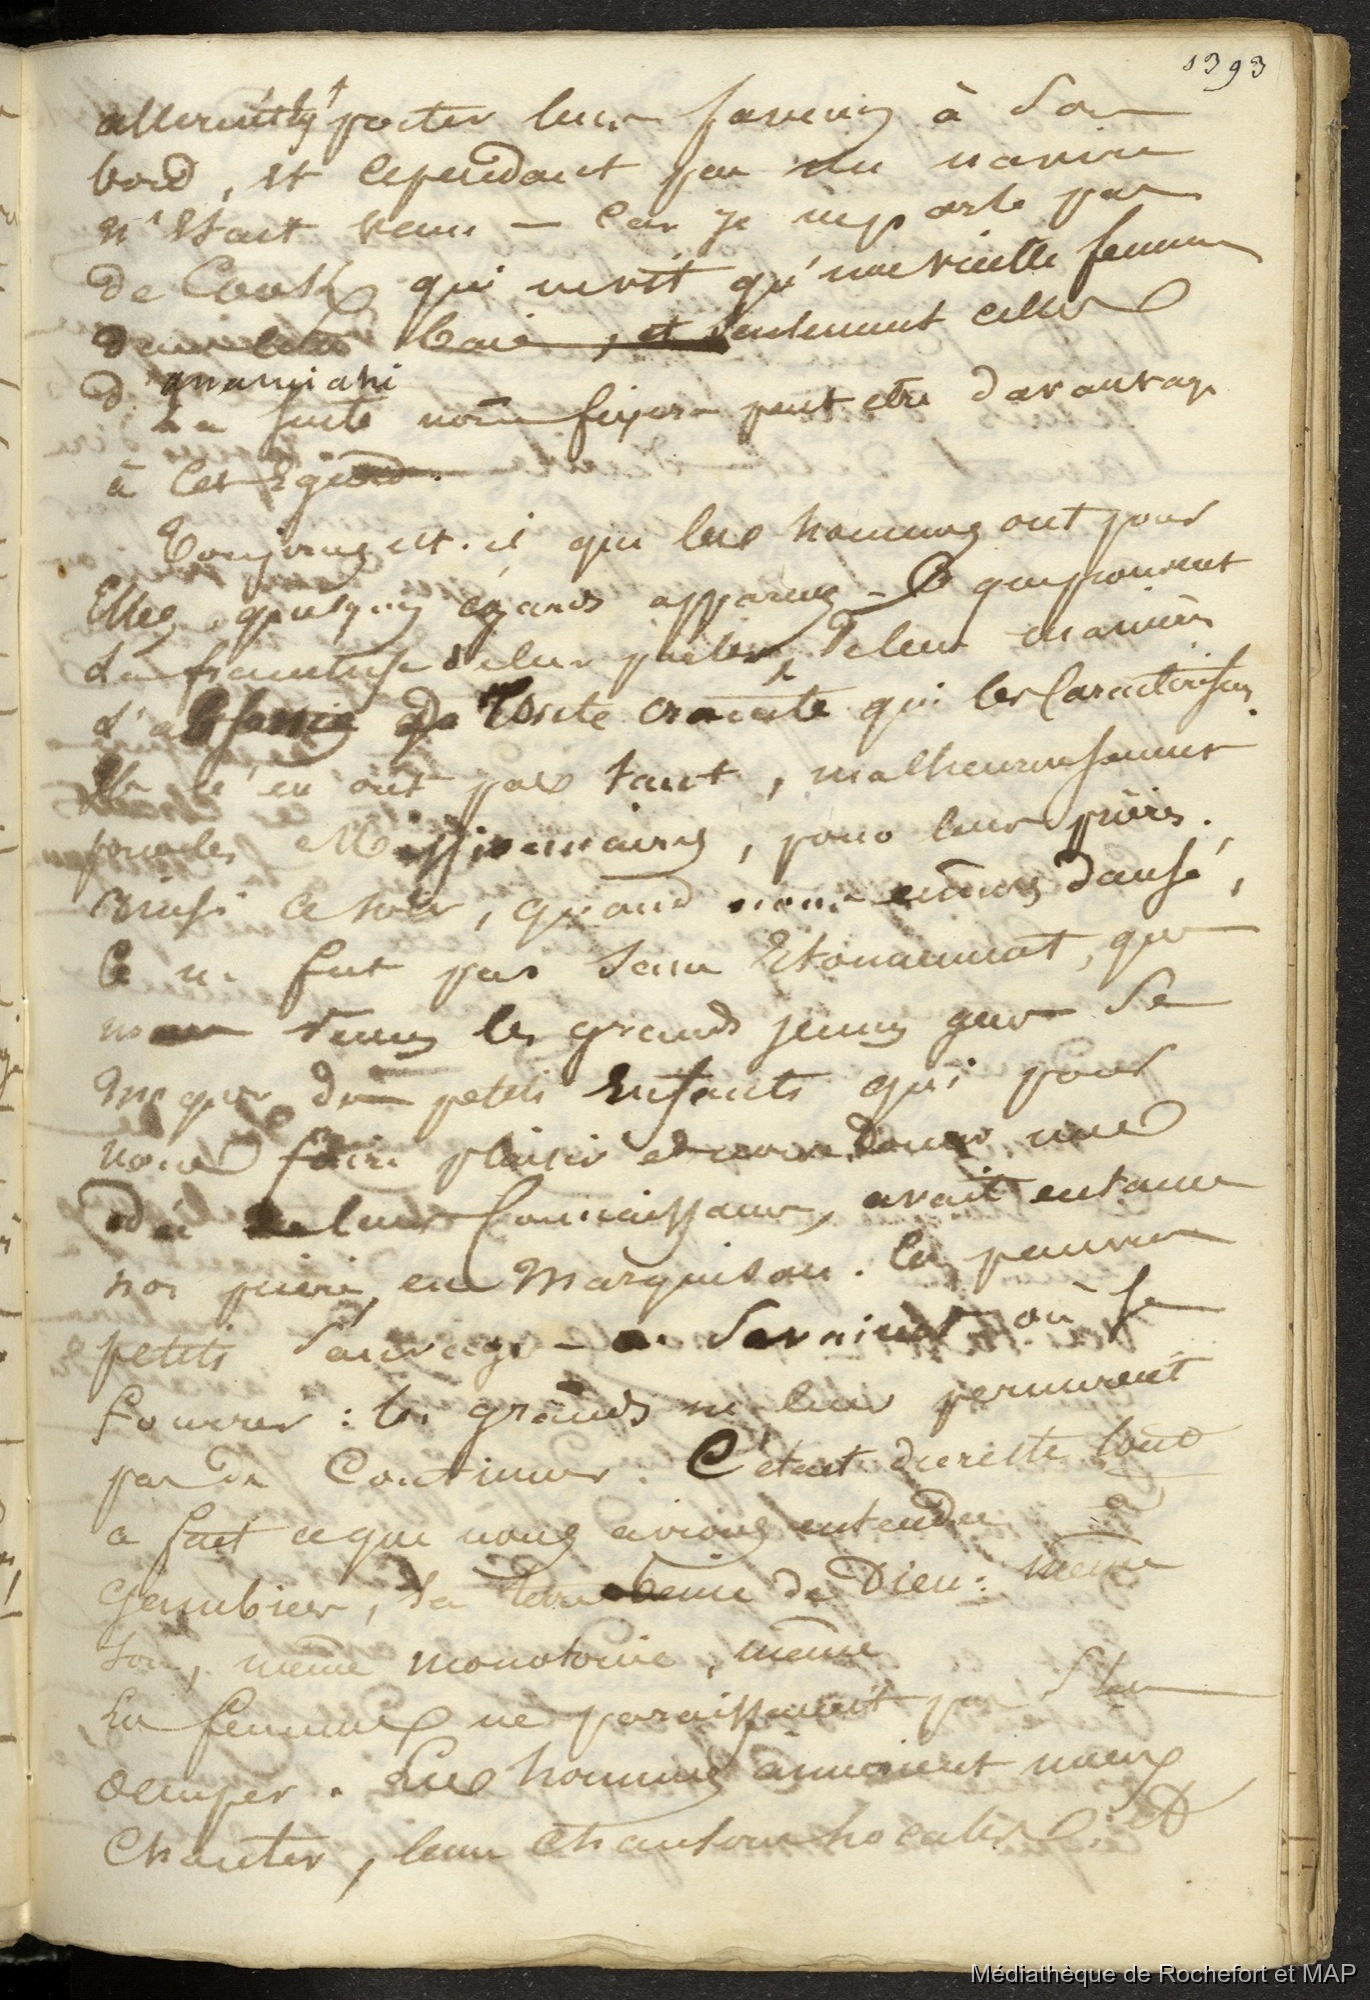 1393
allerent-ils porter leurs faveurs à son
bord, et cependant pas un navire
n'était venu – car je ne parle pas
de Cook, qui ne vit qu'une vieille femme
dans cette baie, et seulement celles
d
anamiani
La suite nous fixera peut etre davantage
à cet égard.
Toujours est-il que les hommes ont pour
Elles quelques égards apparens – Ce que prouvent
La franchise de leur parler, de leur manières
L'absence de toute crainte qui les caractérisent.
Ils n'en ont pas tant, malheureusement
pour les Missionnaires, pour leurs prières.
Ainsi ce soir, quand nous eûmes dansé,
Ce ne fut pas sans Etonnement, que
nous vimes les grands jeunes gens se
moquer des petits Enfants qui pour
nous faire plaisir et nous donner une
idée de leurs connaissances, avait entamé
nos prières en Marquisan. Les pauvres
petits sauvages ne savaient où se
fourrer : les grands ne leur permirent
pas de continuer. C'était du reste tout
a fait ce que nous avions entendu à
Gambier, la terre bénie de Dieu : même
ton, même monotonie, même
Les femmes ne paraissaient pas s'en
occuper. Les hommes aimaient mieux
chanter, leurs chansons locales, et